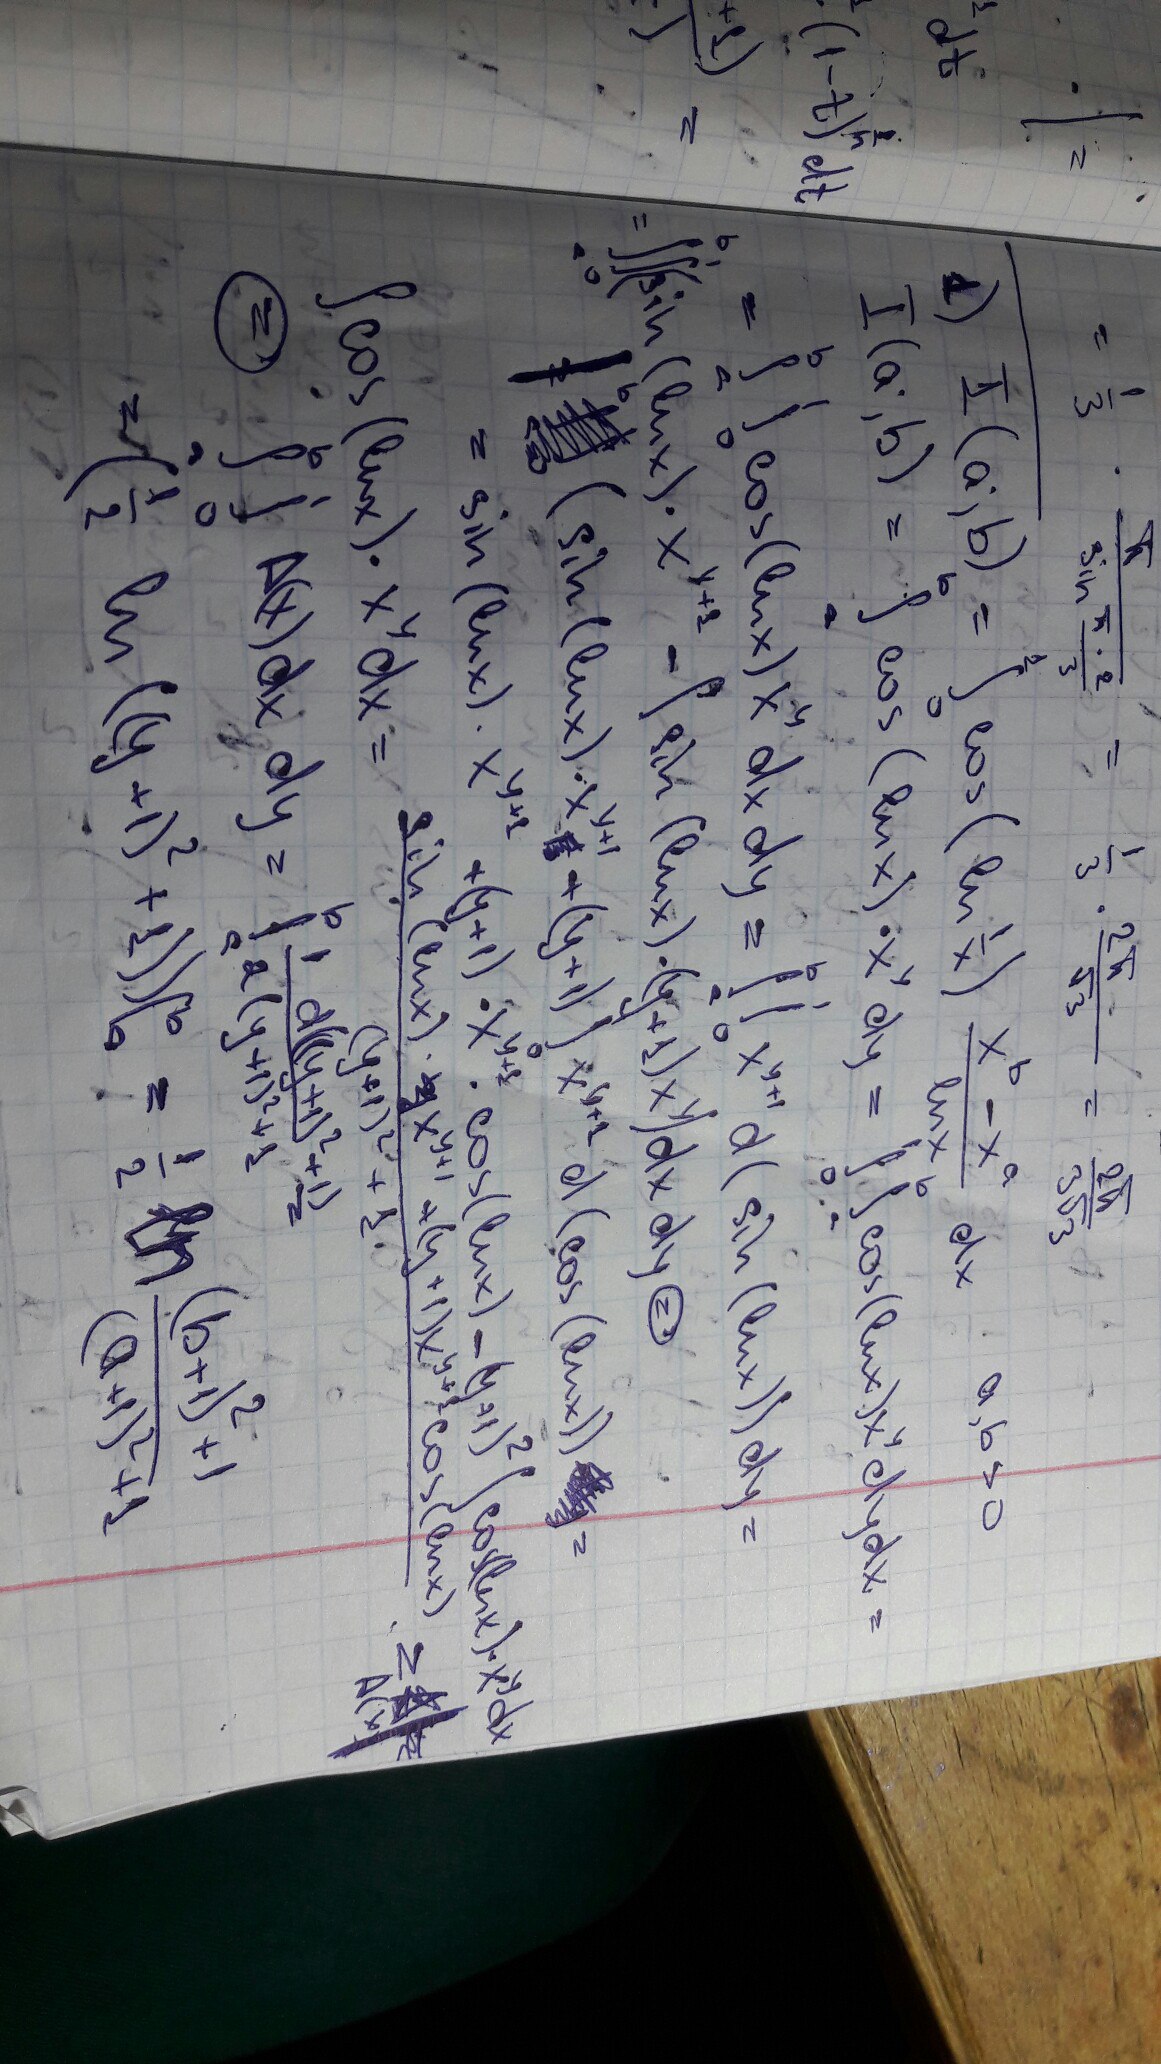 = 1/3 · π/(sin (π·2)/3) = 1/3 · 2π/√3 = 2π/(3√3)
1) I(a;b) = ∫₀¹ cos(ln 1/x) (x^b - x^a)/(ln x) dx a,b > 0
I(a;b) = ∫ₐᵇ cos(ln x)·x^y dy = ∫₀¹ ∫ₐᵇ cos(ln x) x^y dy dx =
= ∫ₐᵇ ∫₀¹ cos(ln x) x^y dx dy = ∫ₐᵇ ∫₀¹ x^(y+1) d(sin(ln x)) dy =
= ∫ₐᵇ ∫₀¹ (sin(ln x)·x^(y+1) - ∫ sin(ln x)·(y+1)x^y) dx dy ⊜
(sin(ln x)·x^(y+1) + (y+1) ∫₀¹ x^(y+1) d(cos(ln x)) =
= sin(ln x)·x^(y+1) + (y+1)·x^(y+1)·cos(ln x) - (y+1)² ∫ cos(ln x)·x^y dx
∫ cos(ln x)·x^y dx = (sin(ln x)·x^(y+1) + (y+1)x^(y+1) cos(ln x))/((y+1)² + 1) = A(x)
⊜ ∫ₐᵇ ∫₀¹ A(x) dx dy = ∫ₐᵇ (1 d((y+1)²+1))/(2 (y+1)²+1) =
= (1/2 ln((y+1)² + 1))|ₐᵇ = 1/2 ln ((b+1)²+1)/((a+1)²+1)
dt
·(1-t) dt
+1)
=